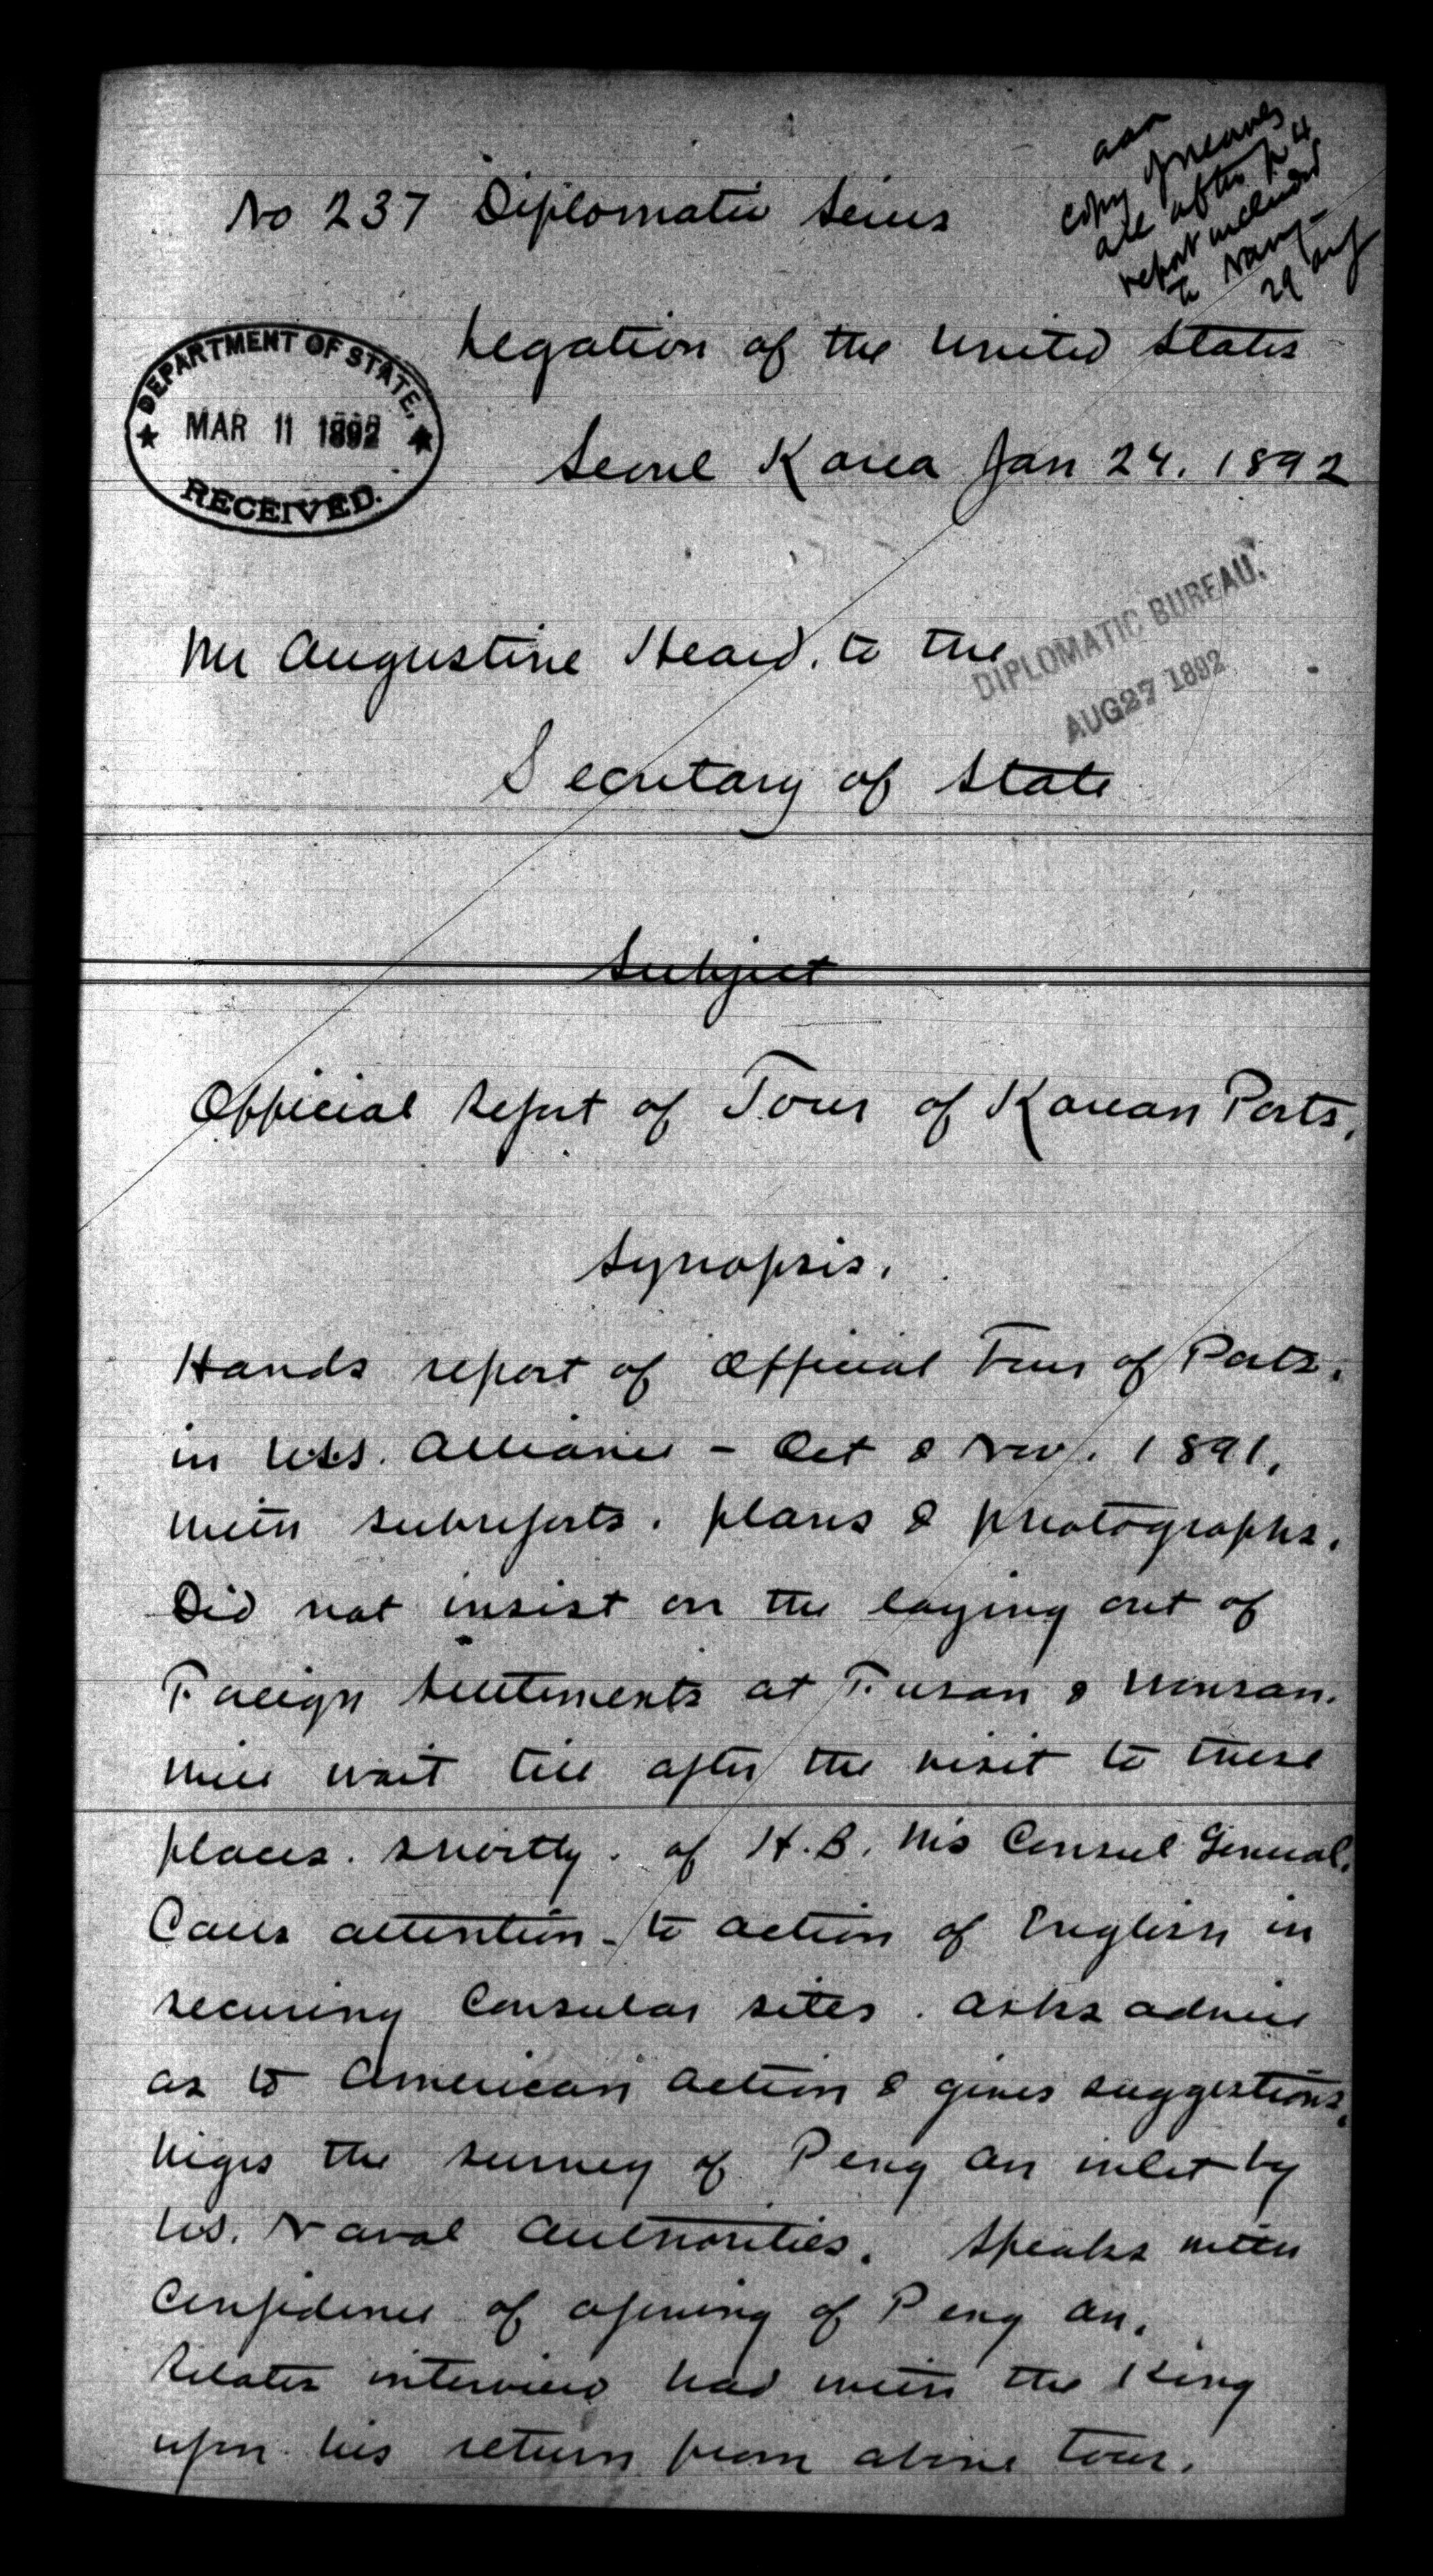 copy of
all after p 4
report included
to Navy
29
No 237 Diplomatic Series
Legation of the United States
DEPARTMENT OF STATE.
MAR 11 1892
RECEIVED.
Seoul Korea Jan 24. 1892
DIPLOMATIC BUREAU.
AUG 27 1892
Mr Augustine Heard, to the
Secretary of State
Subject
Official Report of Tour of Korean Ports.
Synopsis.
Hands report of Official Tour of Ports.
in U.S.S. Alliance - Oct & Nov. 1891.
with subreports. plans & photographs.
Did not insist on the laying out of
Foreign Settlements at Fusan & Wonsan.
Will wait till after the visit to these
places. shortly. of H.B. Ms Consul General.
Calls attention - to action of English in
securing Consular sites. Asks advice
as to American action & gives suggestions.
Urges the survey of Peng An inlet by
U.S. Naval Authorities. Speaks with
Confidence of opening of Peng An.
Relates interview had with the King
upon his return from above tour.